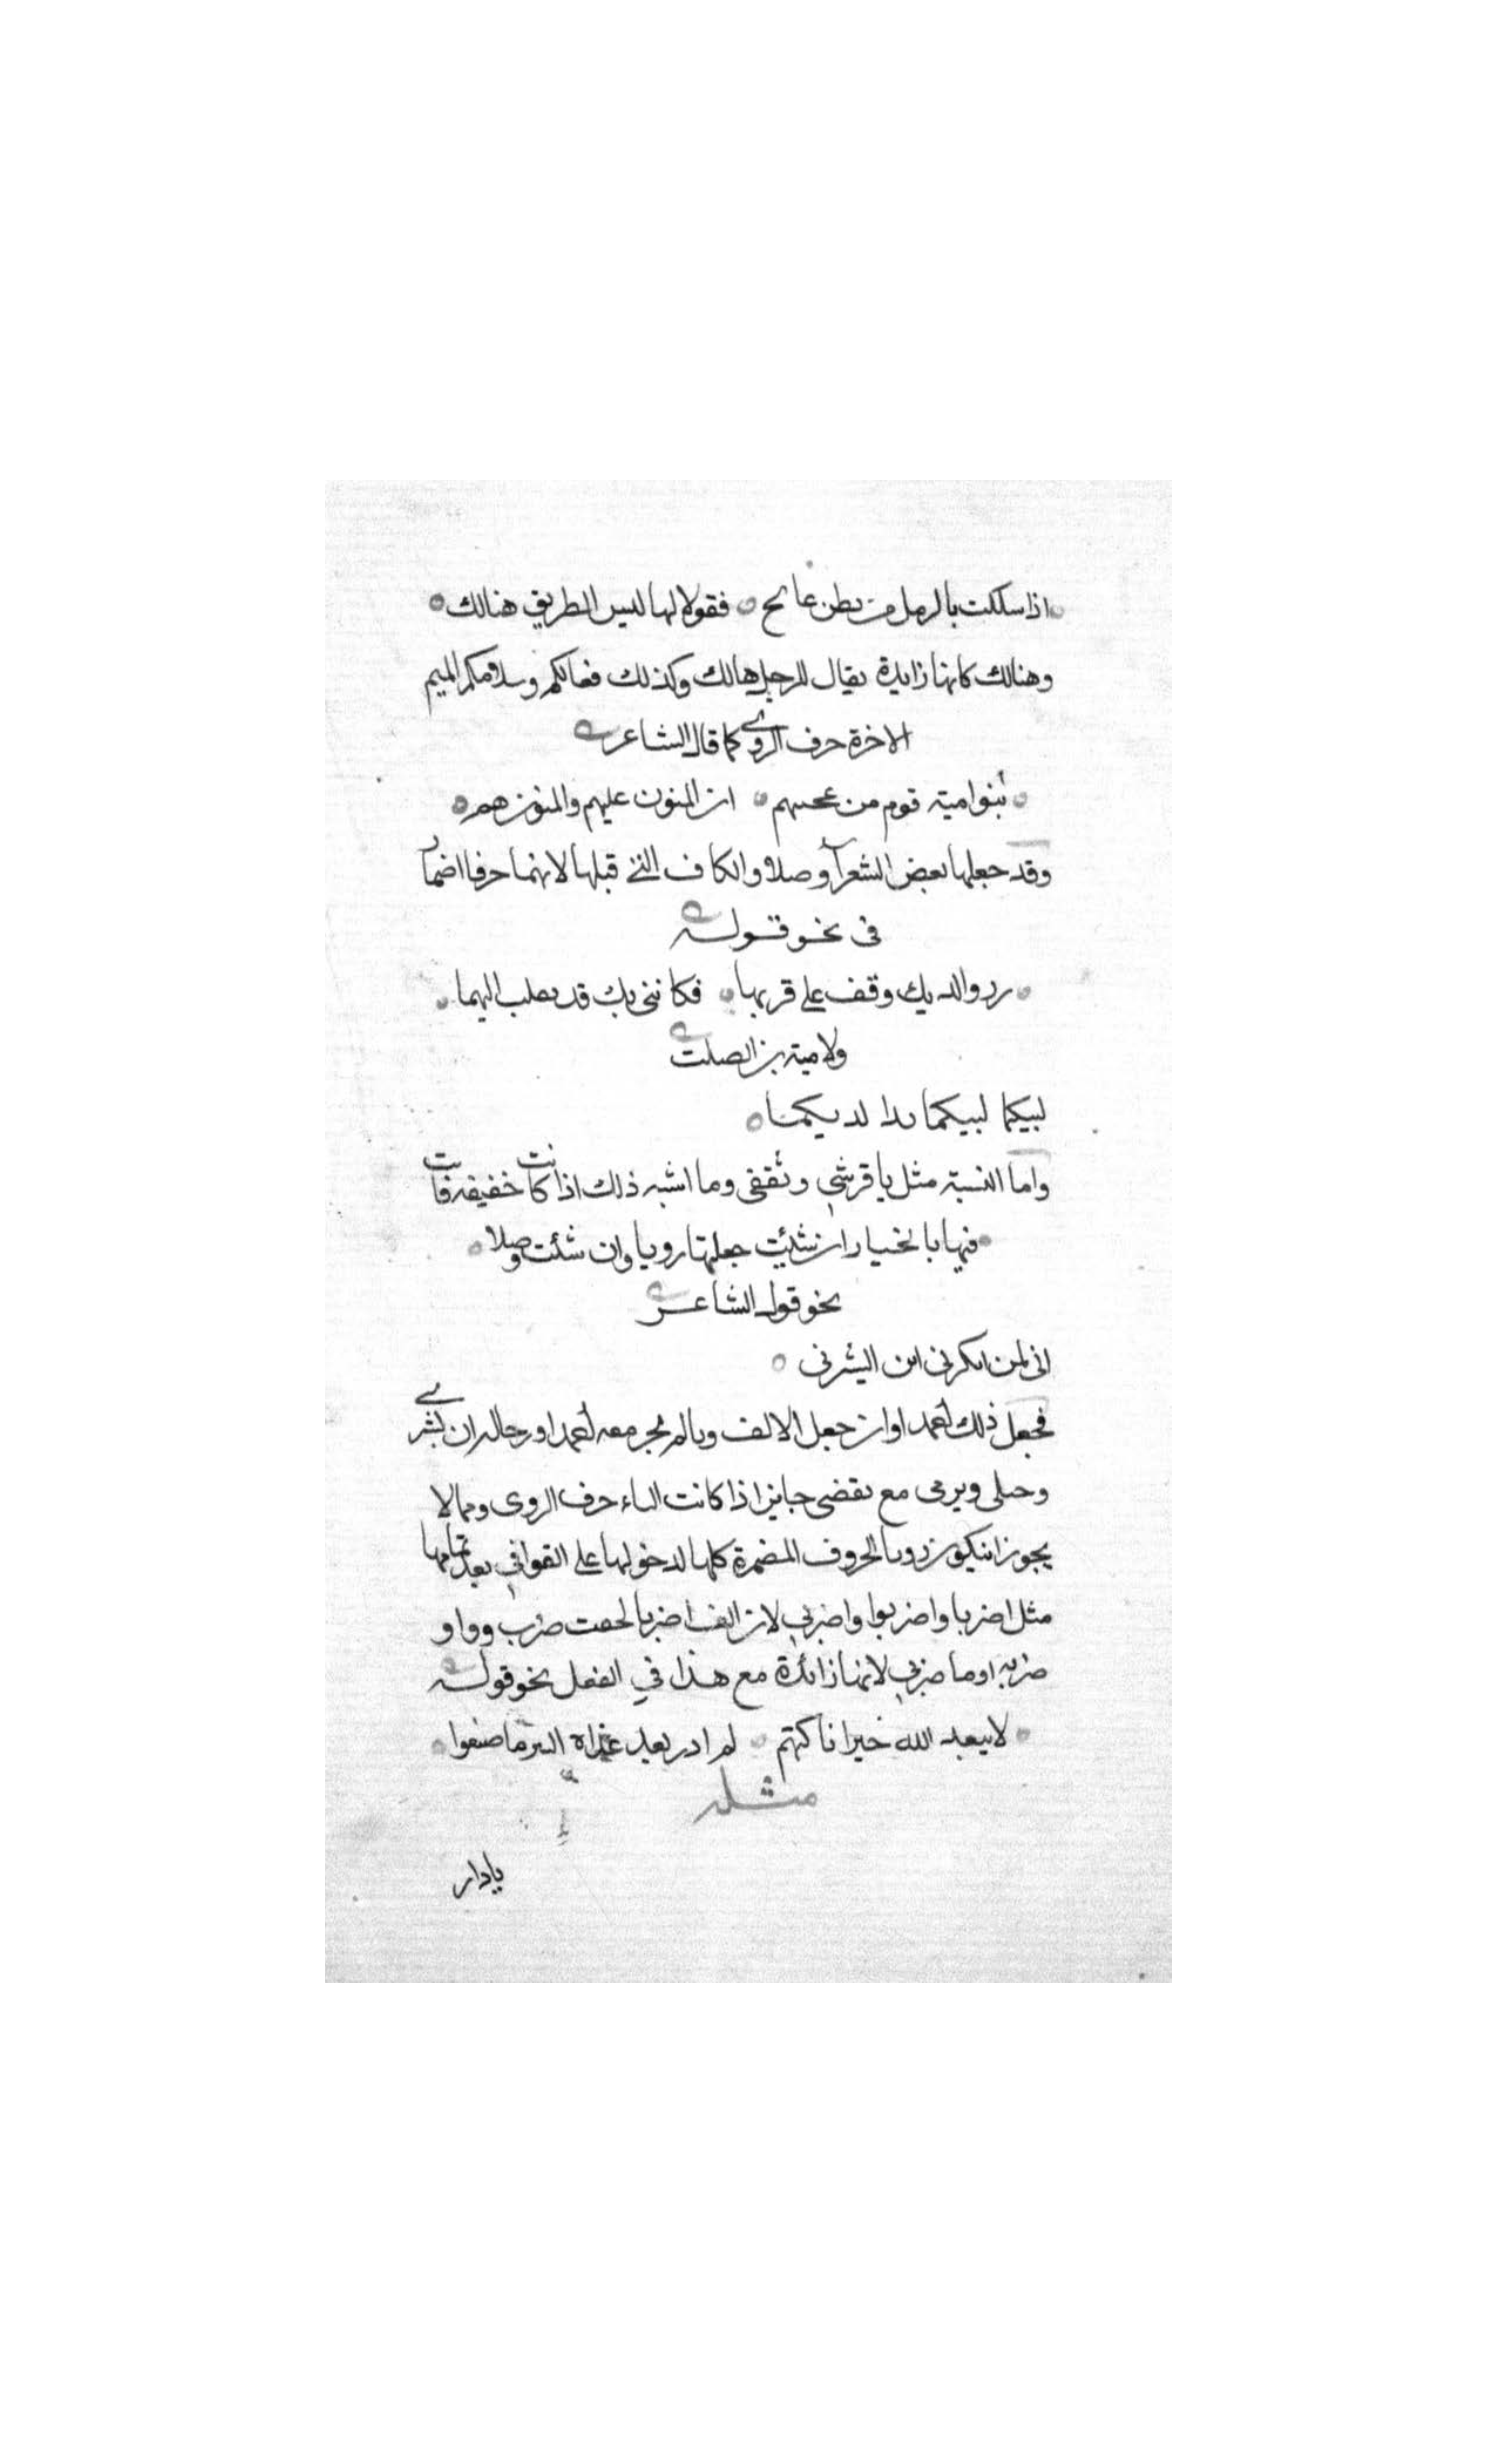 اذا سلكت بالرمل من بطن عالج فقولا لها ليس الطريق هنالك
وهنالك كانها زايدة يقال للرجل هالك وكذلك فعالكم وسلامكم الميم
الاخرة حرف الروي كما قال الشاعر
بنوا امية قوم من ان المنون عليهم والمنون هم
وقد جعلها بعض الشعرآ وصلا والكاف التي قبلها لانهما حرفا اضمار
في نحو قوله
زر والديك وقف على قريهما فكانني بك قد اليهما
ولامية بن الصلت
لبيكما لبيكما ها لديكما
واما النسبة مثل يا قرشي وثقفي وما اشبه ذلك اذا كانت خفيفة فانت
فيها بالخيار ان شئت جعلتها رويا وان شئت وصلا
نحو قول الشاعر
اني لمن انكرني ابن اليثربي
فجعل ذلك او ان جعل الالف ويا لم يجز معه ان بشرى
وحبلى ويرمى مع يقضى جايز اذا كانت الياء حرف الروى ومما لا
يجوز ان يكون رويا الحروف المضمرة كلها لدخولها على القوافي بعد تمامها
مثل اضربا واضربوا واضربي لان الف اضربا لحقت ضرب وواو
ضربوا وما ضربي لانها زائدة مع هذا في الفعل نحو قوله
لا يبعد الله جيرانا تركتهم لم ادر بعد غداة البين ما صنعوا
مثله
يا دار